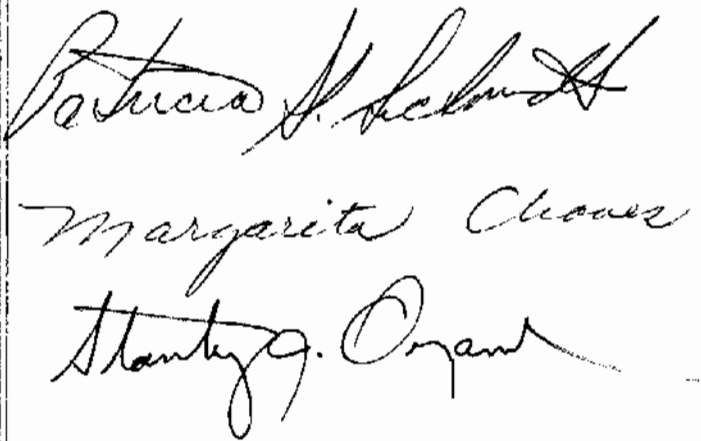 Patricia S. Schmidt
Margarita Chavez
Stanley J.